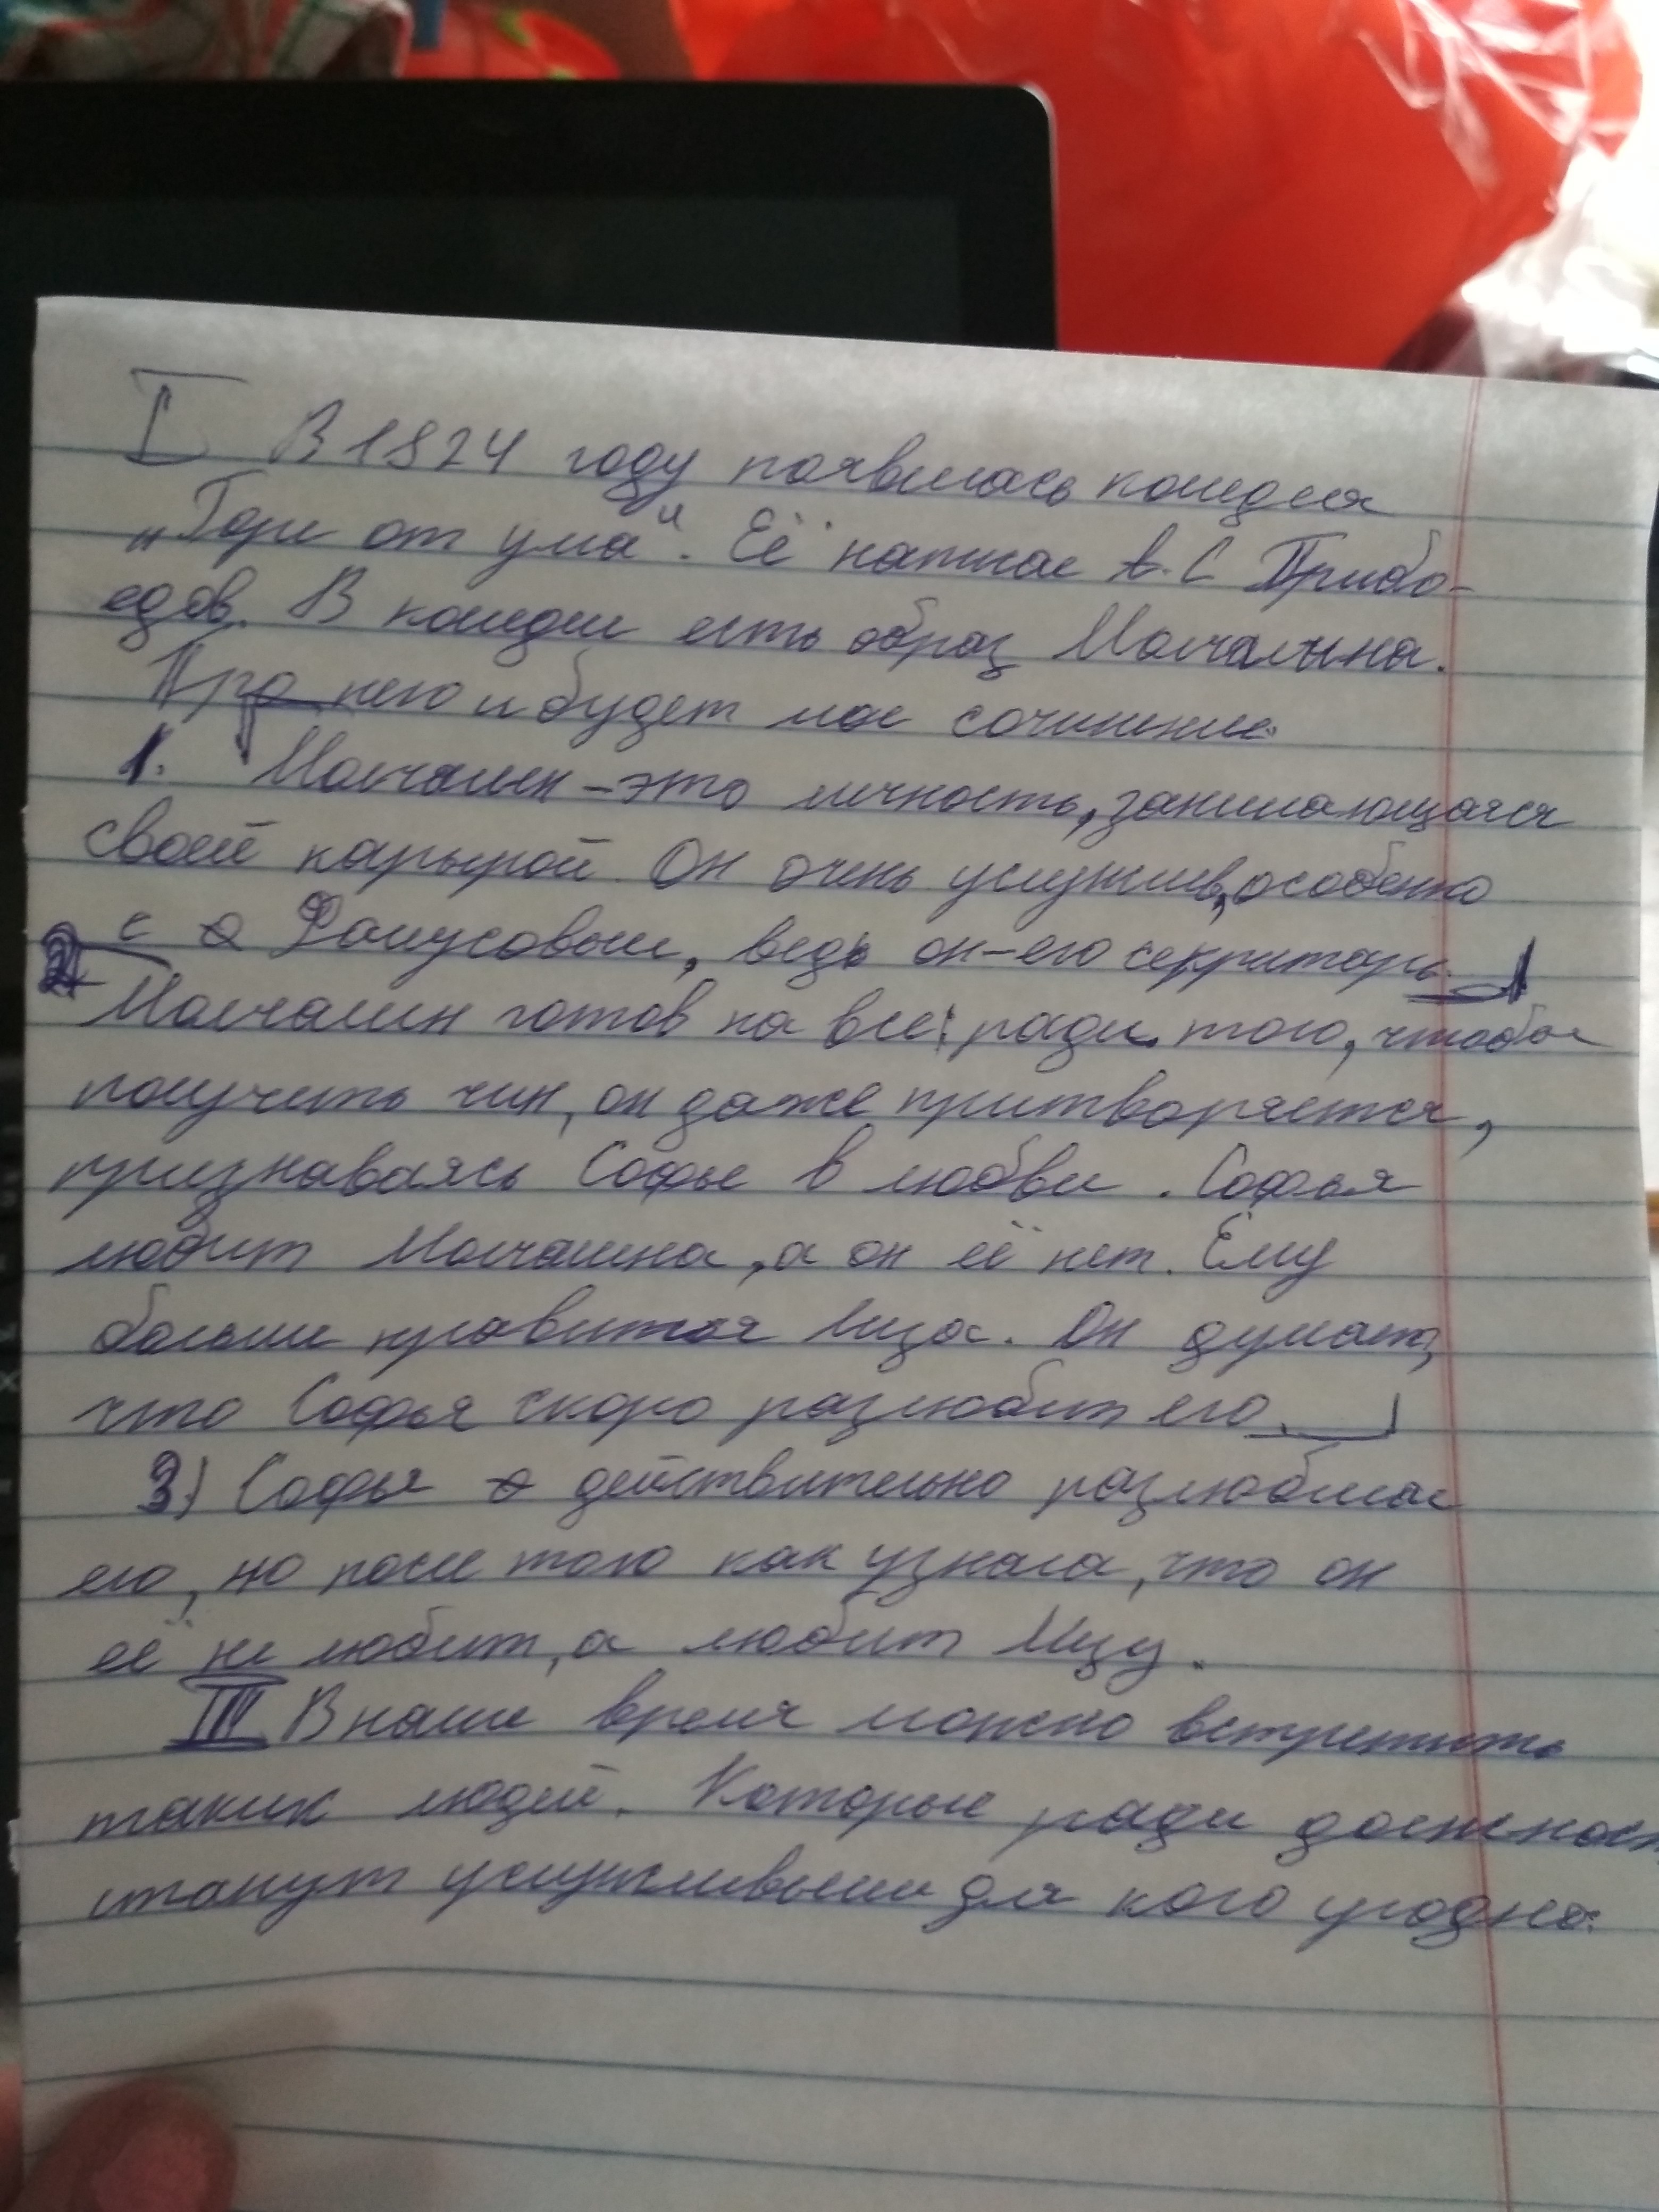 I В 1824 году появилась комедия
„Горе от ума". Её написал А.С Грибо-
едов. В комедии есть образ Молчалина.
Про него и будет мое сочинение.
1. Молчалин – это личность, занимающаяся
своей карьрой. Он очень услужлив, особенно
с Фамусовым, ведь он – его секритарь.
2 Молчалин готов на все: ради того, чтобы
получить чин, он даже притворяется,
признаваясь Софье в любви. Софья
любит Молчалина, а он её нет. Ему
больше нравится Лиза. Он думает,
что Софья скоро разлюбит его.
3) Софья действительно разлюбила
его, но после того как узнала, что он
её не любит, а любит Лизу.
III В наше время можно встретить
таких людей. Которые ради должност
станут услужливыми для кого угодно.